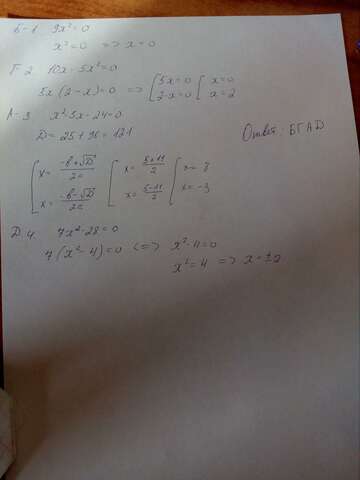 Б-1. 9x²=0
x²=0 => x=0
Г-2. 10x-5x²=0
5x(2-x)=0 => [5x=0 2-x=0 [x=0 x=2
А-3. x²-5x-24=0
D=25+96=121
Ответ: БГАД
[x=(-b+√D)/2a [x=(5+11)/2 [x=8
x=(-b-√D)/2a x=(5-11)/2 x=-3
Д-4. 7x²-28=0
7(x²-4)=0 <=> x²-4=0
x²=4 => x=±2